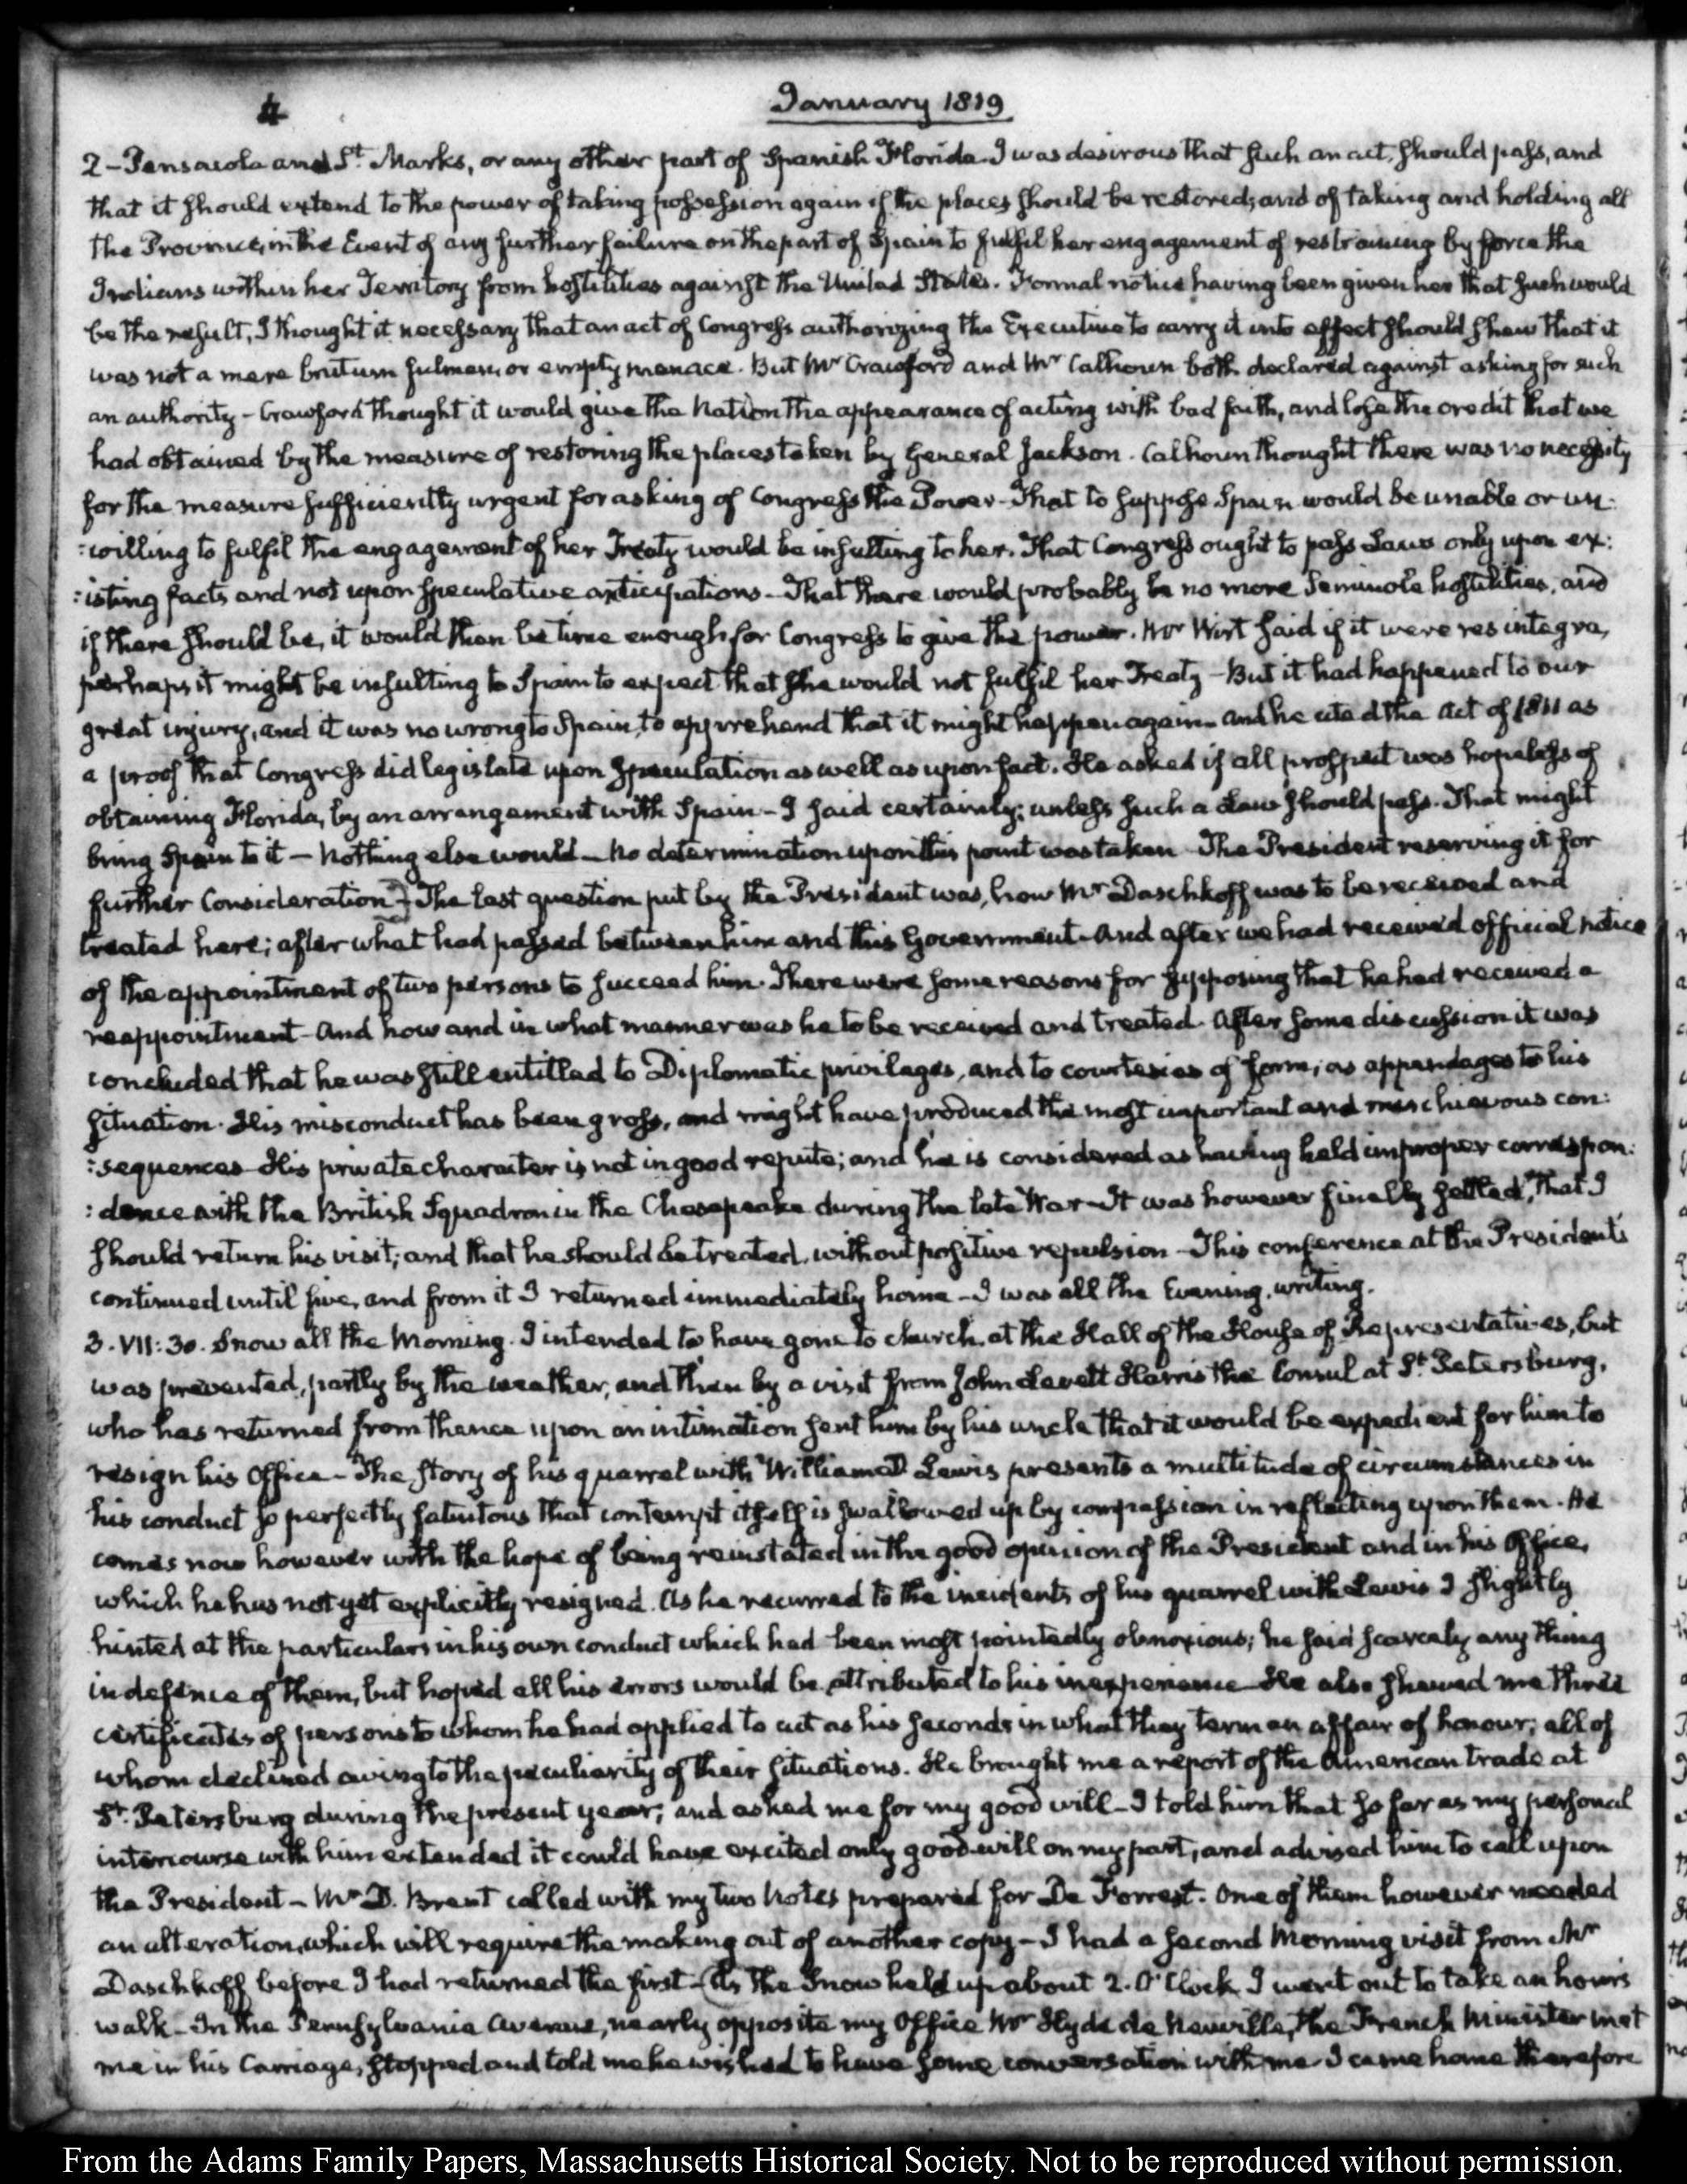 4
January 1819
2 - Pensacola and St. Marks, or any other part of Spanish Florida. I was desirous that such an act, should pass, and
that it should extend to the power of taking possession again if the places should be restored; and of taking and holding all
the Province, in the Event of any further failure on the part of Spain to fulfil her engagement of restraining by force the
Indians within her Territory from hostilities against the United States. Formal notice having been given her that such would
be the result, I thought it necessary that an act of Congress authorizing the Executive to carry it into effect should shew that it
was not a mere brutum fulmen, or empty menace. But Mr Crawford and Mr Calhoun both declared against asking for such
an authority - Crawford thought it would give the Nation the appearance of acting with bad faith, and lose the credit that we
had obtained by the measure of restoring the places taken by General Jackson. Calhoun thought there was no necessity
for the measure sufficiently urgent for asking of Congress the Power - That to suppose Spain would be unable or un:
:willing to fulfil the engagement of her Treaty would be insulting to her. That Congress ought to pass Laws only upon ex:
:isting facts and not upon speculative anticipations - That there would probably be no more Seminole hostilities, and
if there should be, it would then be time enough for Congress to give the power. Mr Wirt said if it were res integra,
perhaps it might be insulting to Spain to expect that she would not fulfil her Treaty - But it had happened to our
great injury, and it was no wrong to Spain, to apprehend that it might happen again - and he cited the act of 1811 as
a proof that Congress did legislate upon Speculation as well as upon fact. He asked if all prospect was hopeless of
obtaining Florida, by an arrangement with Spain - I said certainly; unless such a Law should pass. That might
bring Spain to it - Nothing else would - No determination upon this point was taken The President reserving it for
further Consideration] The last question put by the President was, how Mr Daschkoff was to be received and
treated here; after what had passed between him and this Government. And after we had received official notice
of the appointment of two persons to succeed him. There were some reasons for supposing that he had received a
reappointment - And how and in what manner was he to be received and treated. After some discussion it was
concluded that he was still entitled to Diplomatic privileges, and to courtesies of form, as appendages to his
situation. His misconduct has been gross, and might have produced the most important and mischievous con:
:sequences - His private character is not in good repute; and he is considered as having held improper correspon:
:dence with the British Squadron in the Chesapeake during the late War - It was however finally settled, that I
should return his visit; and that he should be treated, without positive repulsion - This conference at the President's
continued until five, and from it I returned immediately home - I was all the Evening, writing.
3. VII:30. Snow all the Morning. I intended to have gone to church, at the Hall of the House of Representatives, but
was prevented, partly by the weather, and then by a visit from John Levett Harris the Consul at St. Petersburg,
who has returned from thence upon an intimation sent him by his uncle that it would be expedient for him to
resign his Office - The story of his quarrel with William D Lewis presents a multitude of circumstances in
his conduct so perfectly fatuitous that contempt itself is swallowed up by compassion in reflecting upon them. He
comes now however with the hope of being reinstated in the good opinion of the President and in his Office,
which he has not yet explicitly resigned. As he recurred to the incidents of his quarrel with Lewis I slightly
hinted at the particulars in his own conduct which had been most pointedly obnoxious; he said scarcely any thing
in defence of them, but hoped all his errors would be attributed to his inexperience - He also shewed me three
certificates of persons to whom he had applied to act as his seconds in what they term an affair of honour; all of
whom declined owing to the peculiarity of their situations. He brought me a report of the American trade at
St. Petersburg during the present year; and asked me for my good will - I told him that so far as my personal
intercourse with him extended it could have excited only good-will on my part, and advised him to call upon
the President - Mr D. Brent called with my two Notes prepared for De Forrest. One of them however needed
an alteration, which will require the making out of another copy - I had a second Morning visit from Mr
Daschkoff before I had returned the first - [As the Snow held up about 2. O'Clock I went out to take an hour's
walk - In the Pennsylvania Avenue, nearly opposite my Office Mr Hyde de Neuville, the French Minister met
me in his Carriage, stopped and told me he wished to have some conversation with me - I came home therefore
From the Adams Family Papers, Massachusetts Historical Society. Not to be reproduced without permission.